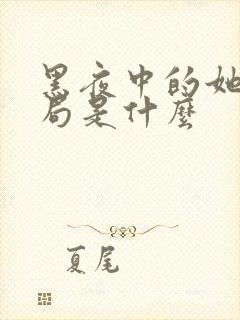 黑夜中的她
局是什麼
夏尾